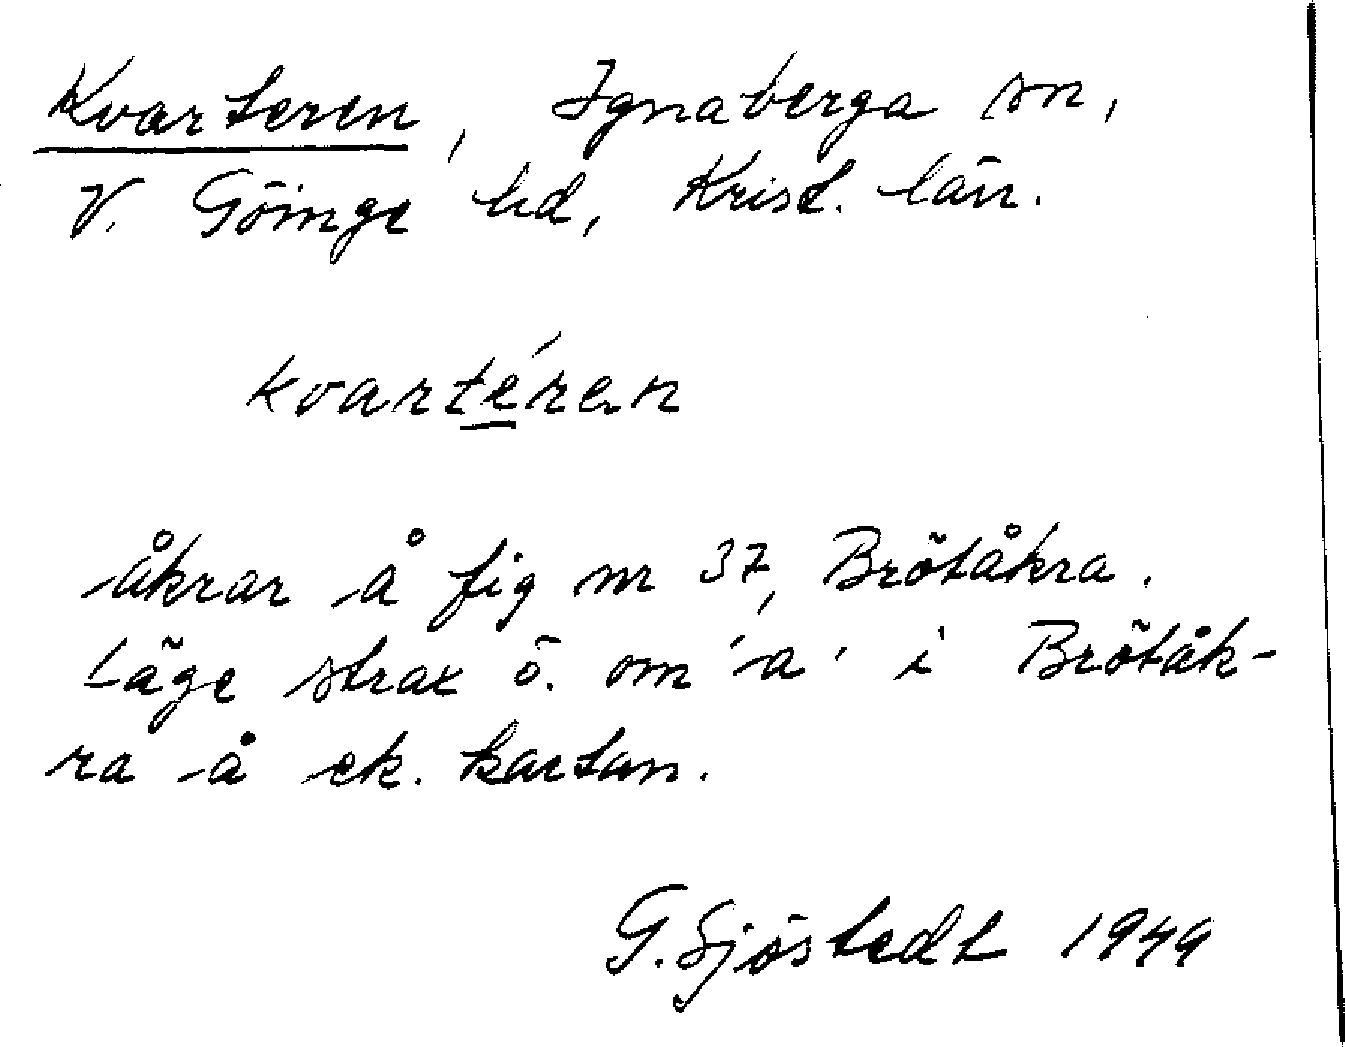 Kvarteren, Ignaberga sn,
V. Göinge hd, Krist. län.
kvartéren
åkrar å fig nr 37, Brötåkra.
Läge strax ö. om 'a' i Brötåk-
ra å ek. kartan.
G. Sjöstedt 1949